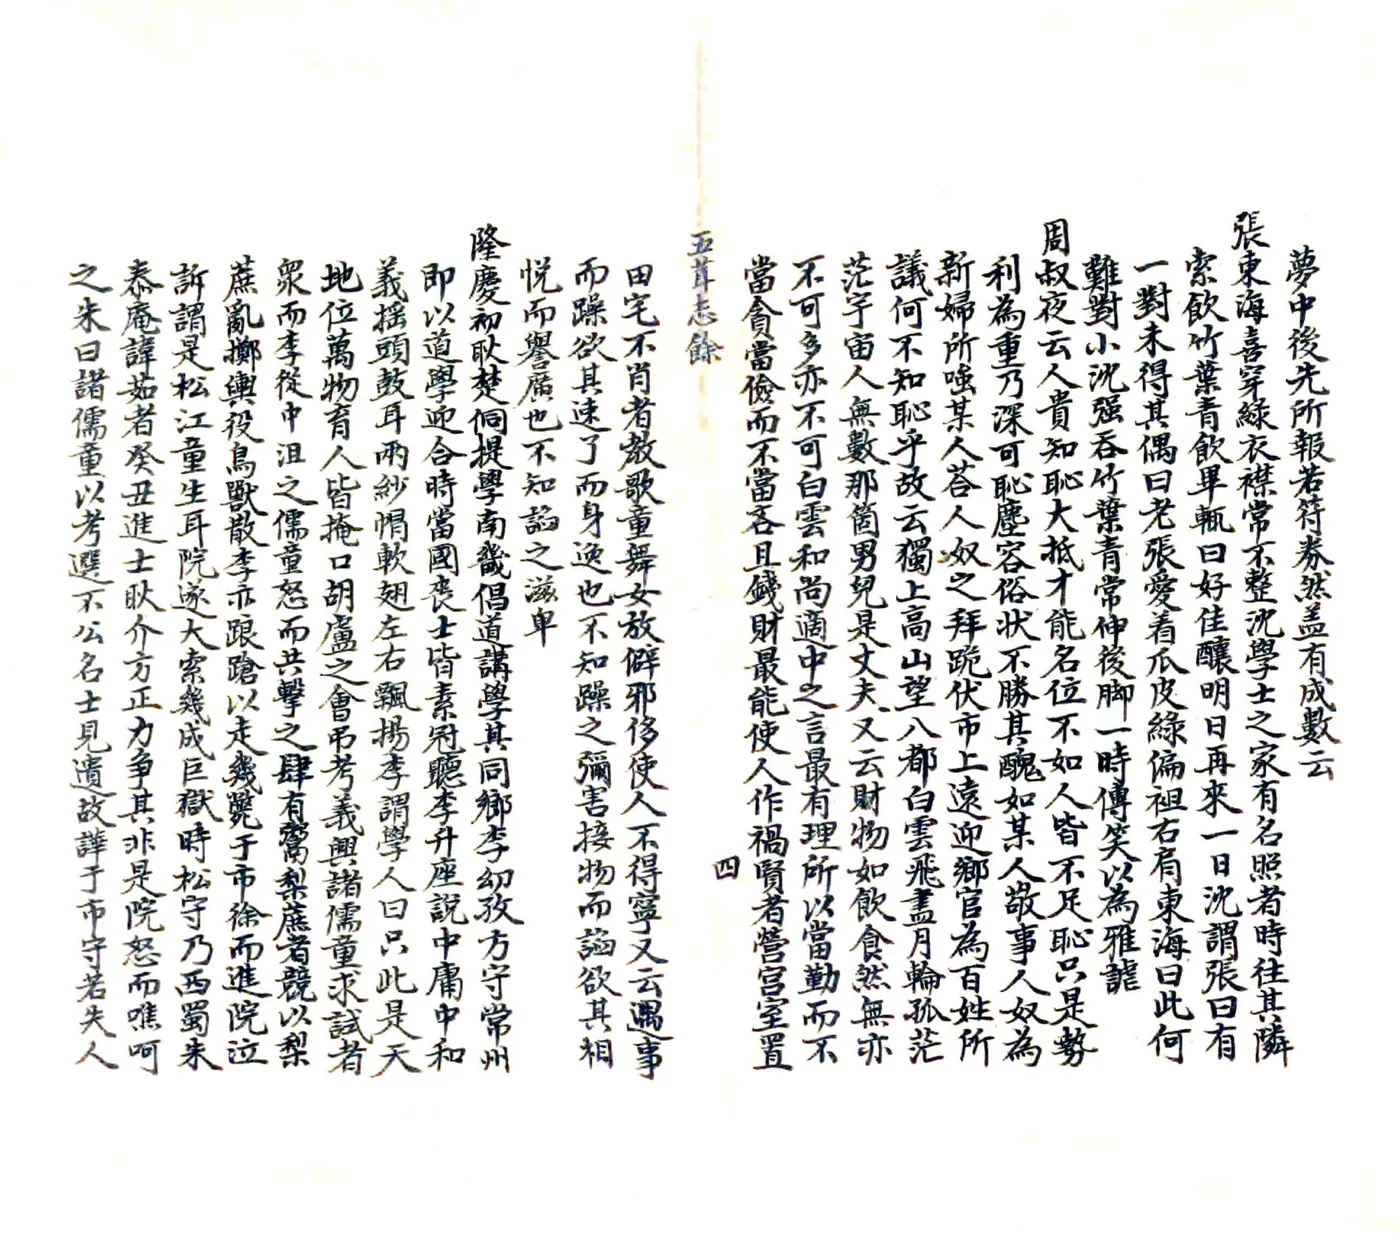 夢中後先所報若符券然盖有成數云
張東海喜穿綠衣襟常不整沈學士之家有名照者時往其隣
索飲竹葉青飲畢輒曰好佳釀明日再來一日沈謂張曰有
一對未得其偶曰老張愛着瓜皮綠偏袒右肩東海曰此何
難對小沈强吞竹葉青常伸後脚一時傳笑以為雅謔
周叔夜云人貴知恥大抵才能名位不如人皆不足恥只是勢
利為重乃深可恥塵容俗狀不勝其醜如某人敬事人奴為
新婦所嗤某人荅人奴之拜跪伏市上遠迎鄉官為百姓所
議何不知恥乎故云獨上高山望八都白雲飛盡月輪孤茫
茫宇宙人無數那箇男兒是丈夫又云財物如飲食然無亦
不可多亦不可白雲和尚適中之言最有理所以當勤而不
當貪當儉而不當吝且錢財最能使人作禍賢者營宮室置
四
五茸志餘
田宅不肖者教歌童舞女放僻邪侈使人不得寧又云遇事
而躁欲其速了而身逸也不知躁之彌害接物而謟欲其相
悅而譽應也不知謟之滋卑
隆慶初耿楚侗提學南畿倡道講學其同鄉李幼孜方守常州
即以道學迎合時當國喪士皆素冠聽李升座說中庸中和
義搖頭鼓耳兩紗帽軟翅左右飄揚李謂學人曰只此是天
地位萬物育人皆掩口胡盧之會吊考義興諸儒童求試者
衆而李從中沮之儒童怒而共擊之肆有鬻梨蔗者競以梨
蔗亂擲輿役鳥獸散李亦踉蹌以走幾斃于市徐而進院泣
訴謂是松江童生耳院遂大索幾成巨獄時松守乃西蜀朱
泰庵諱茹者癸丑進士耿介方正力爭其非是院怒而噍呵
之朱曰諸儒童以考選不公名士見遺故譁于市守若失人